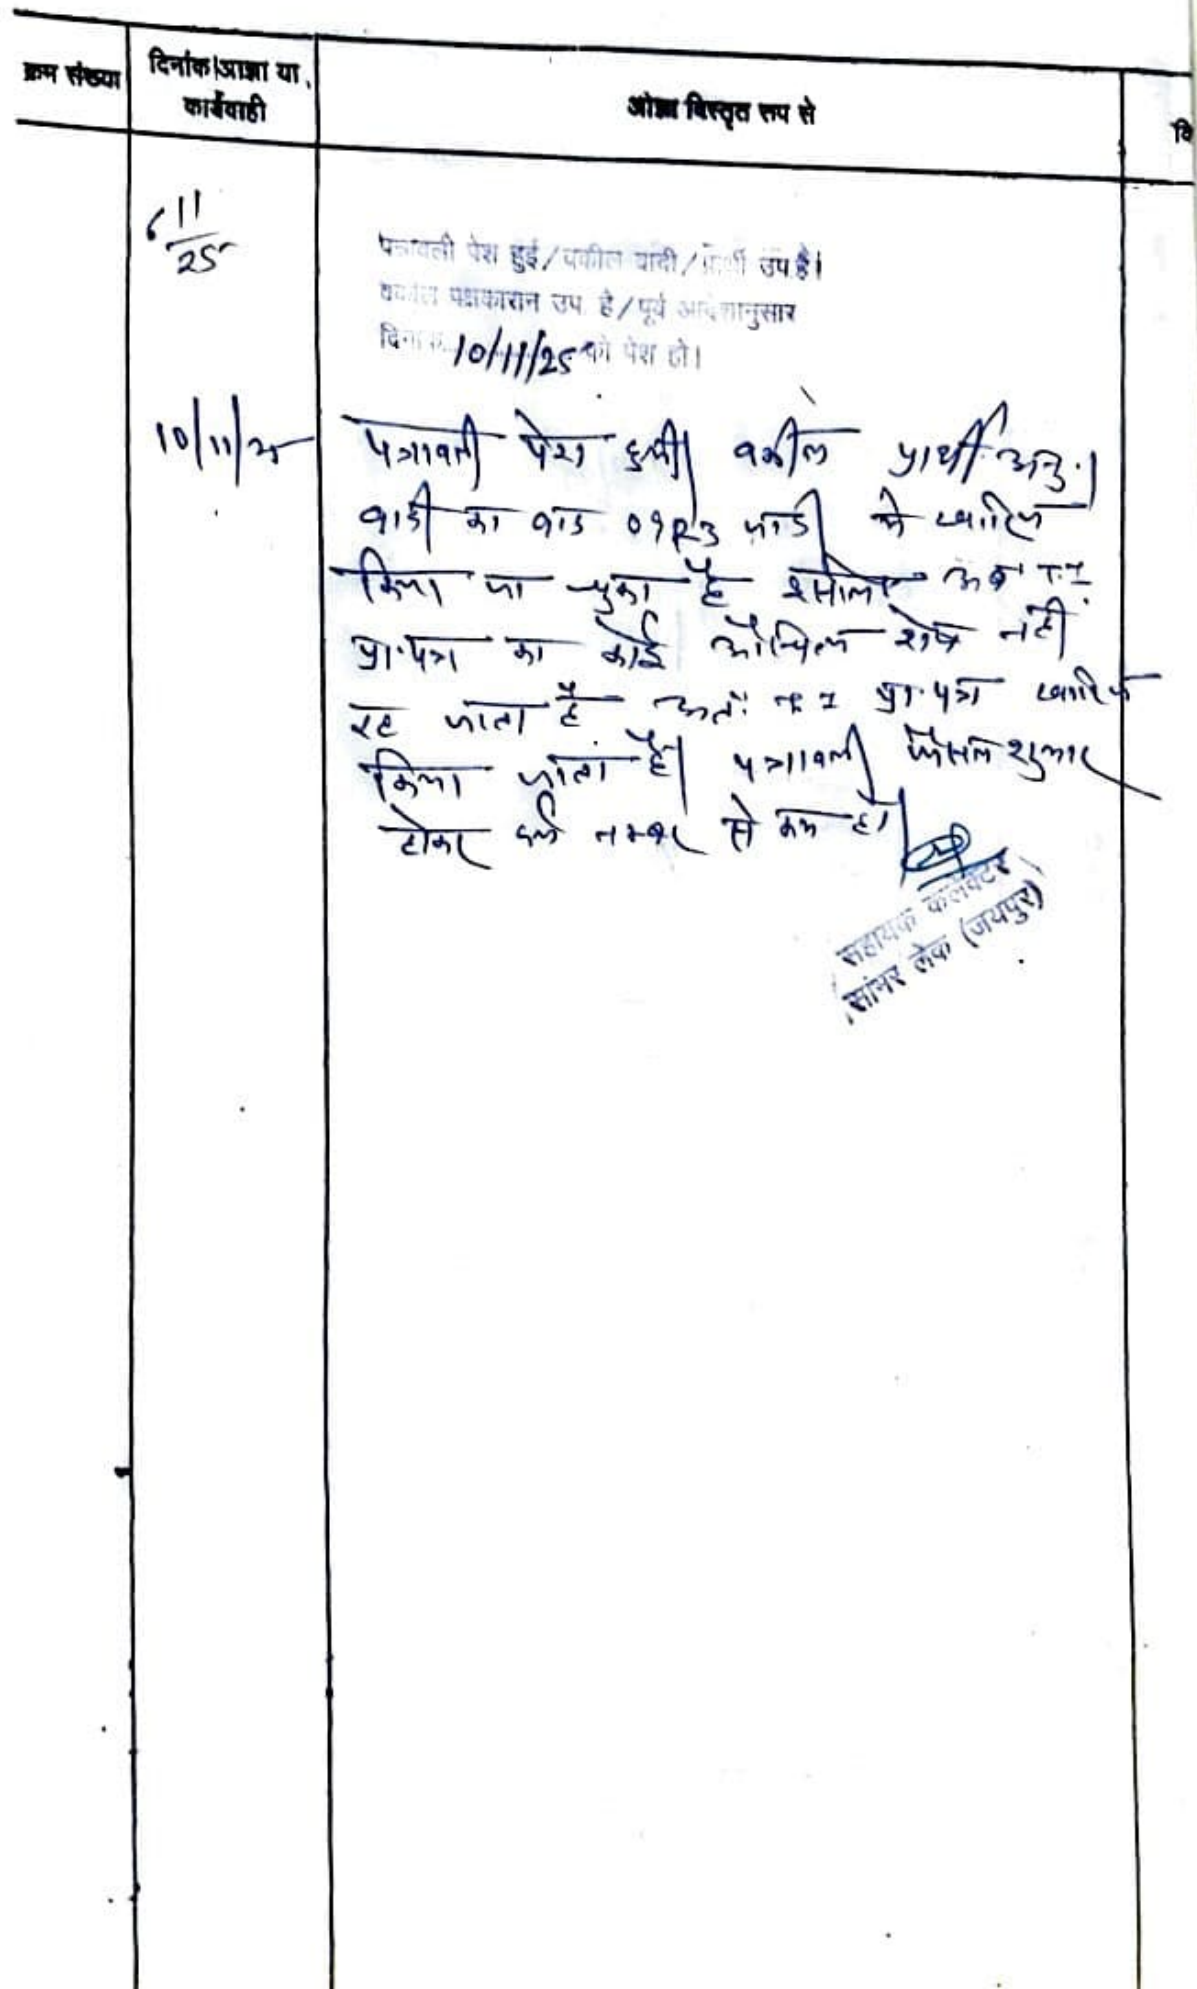 क्रम संख्या
दिनांक आज्ञा या
कार्यवाही
आज्ञा विस्तृत रूप से
वि
6/11/25
पत्रावली पेश हुई/वकील वादी/प्रार्थी उप.है।
वकील पक्षकारान उप. है/पूर्व आदेशानुसार
दिनांक 10/11/25 को पेश हो।
10/11/25
पत्रावली पेश हुयी। वकील प्रार्थी अनु.।
वादी का वाद में खारिज
किया जा चुका है इसलिए अब T.I
प्रा.पत्र का कोई औचित्य शेष नही
रह जाता है अतः T.I प्रा.पत्र खारिज
किया जाता है। पत्रावली फैसल शुमार
होकर दर्ज नम्बर से कम हो।
सहायक कलेक्टर
सांभर लेक (जयपुर)